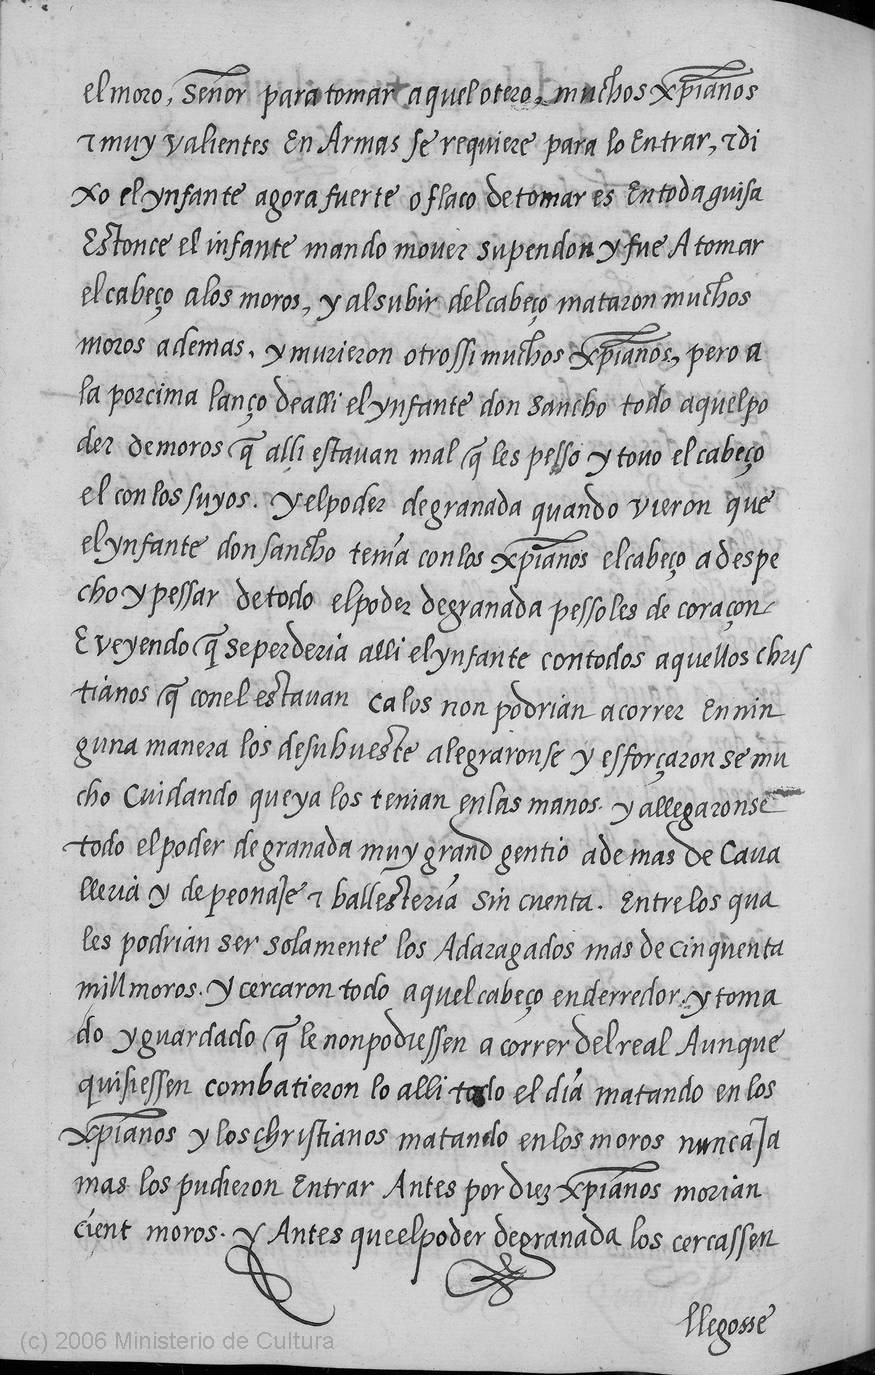 el moro, señor para tomar aquel otero, muchos xp̃ianos
⁊ muy valientes En Armas se requiere para lo Entrar, ⁊ di
xo el ynfante agora fuerte o flaco de tomar es En toda guisa
Estonce el infante mando mover su pendon y fue A tomar
el cabeço a los moros, y al subir del cabeço mataron muchos
moros ademas. y murieron otrossi muchos xp̃ianos, pero a
la porcima lanço de alli el ynfante don sancho todo aquel po
der de moros q̃ alli estavan mal q̃ les pesso y tovo el cabeço
el con los suyos. y el poder de granada quando vieron que
el ynfante don sancho tenia con los xp̃ianos el cabeço a despe
cho y pessar de todo el poder de granada pessoles de coraçon
E veyendo q̃ se perderia alli el ynfante con todos aquellos chris
tianos q̃ con el estavan ca los non podrian acorrer En nin
guna manera los de su hueste alegraronse y esforçaron se mu
cho Cuidando que ya los tenian en las manos. y allegaronse
todo el poder de granada muy grand gentio ademas de Cava
lleria y de peonaje ⁊ ballesteria sin cuenta. Entre los qua
les podrian ser solamente los Adaragados mas de cinquenta
mill moros. y cercaron todo aquel cabeço enderredor. y toma
do y guardado q̃ le non podiessen acorrer del real Aunque
quisiessen combatieron lo alli todo el dia matando en los
xp̃ianos y los christianos matando en los moros nunca ja
mas los pudieron Entrar Antes por diez xp̃ianos morian
cient moros. y Antes que el poder de granada los cercassen
llegosse
(c) 2006 Ministerio de Cultura